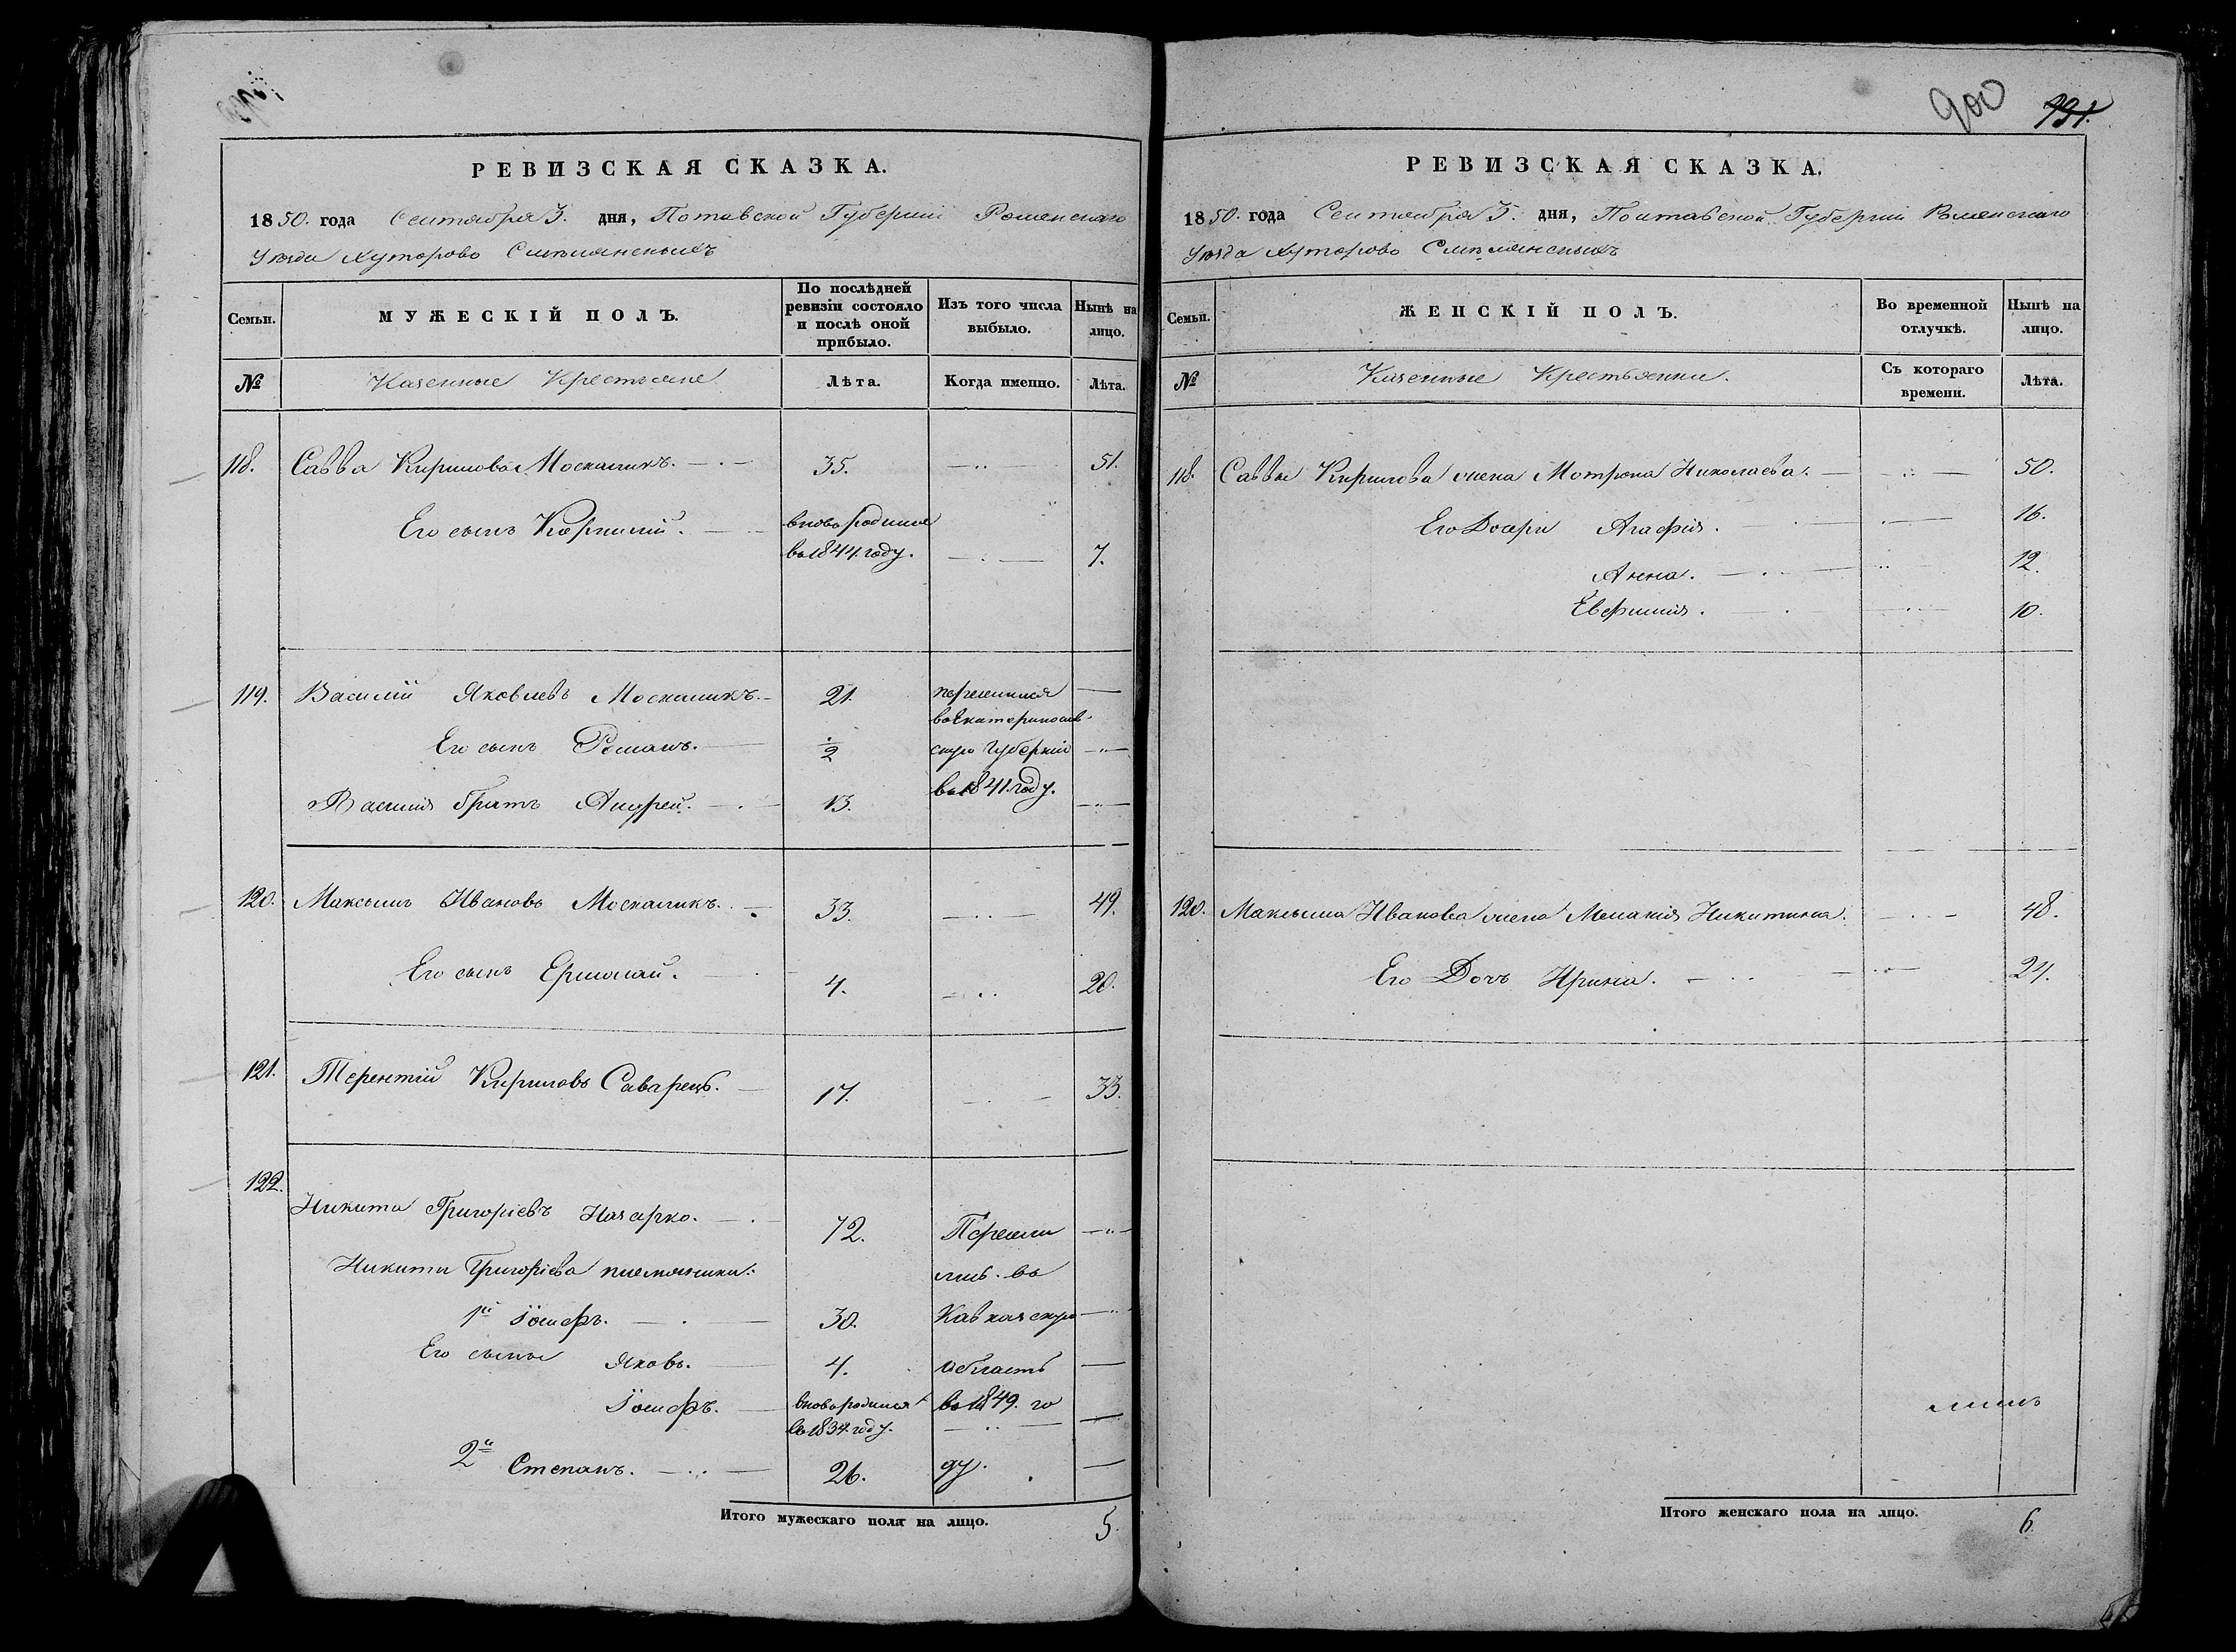 РЕВИЗСКАЯ СКАЗКА.
1850. года Сентября 5. дня, Потавской Губернии Роменскаго
Уезда Хуторово Смелянскихъ
Семьи. МУЖЕСКІЙ ПОЛЪ. По послѣдней ревизіи состояло и послѣ оной прибыло. Изъ того числа выбыло. Нынѣ на лицо.
№ Казенные Крестьяне Лѣта. Когда именно. Лѣта.
118. Савва Кириловъ Москаликъ. 35. 51.
Его сынъ Корнилій. вновородился
въ 1844. году. 7.
119. Василій Яковлевъ Москаликъ. 21. перешлися
въ Екатеринослав-
Его сынъ Романъ. ½ скую Губернію
Василія братъ Андрей. 13. въ 1841. году.
120. Максимъ Ивановъ Москаликъ. 33. 49.
Его сынъ Ермолай. 4. 20.
121. Терентій Кириловъ Саварецъ. 17. 33.
122.
Никита Григоріевъ Назарко. 72. Пересели
Никити Григоріева племянники: лись. въ
1й Іосифъ. 30. Кавказскую
Его сыны Яковъ. 4. область
Іосифъ. вновородился въ 1849. го
въ 1834. году.
2й Степанъ. 26. ду.
Итого мужескаго пола на лицо. 5.
900 931.
РЕВИЗСКАЯ СКАЗКА.
1850. года Сентября 5. дня, Полтавской Губерніи Роменскаго
Уезда Хуторово Смелянскихъ
Семьи. ЖЕНСКІЙ ПОЛЪ. Во временной отлучкѣ. Нынѣ на лицо.
№ Казенные Крестьянки. Съ котораго времени. Лѣта.
118. Саввы Кирилова жена Мотрона Николаева. 50.
Его Дочери Агафія. 16.
Анна. 12.
Евфимия. 10.
120. Максыма Иванова жена Меланія Никитина. 48.
Его Дочъ Ирина. 24.
Итого женскаго пола на лицо. 6.